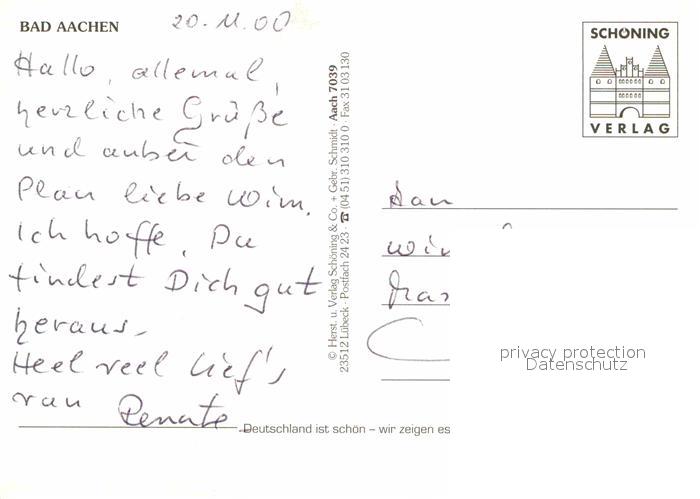 BAD AACHEN
20.11.00
Hallo, allemal,
herzliche Grüße
und anbei den
Plan liebe Wim.
Ich hoffe, Du
findest Dich gut
heraus.
Heel veel lief's
van Renate
Deutschland ist schön – wir zeigen es
© Herst. u. Verlag Schöning & Co. + Gebr. Schmidt · Aach 7039
23512 Lübeck · Postfach 24 23 · ☎ (04 51) 310 310 0 · Fax 31 03 130
SCHÖNING
VERLAG
privacy protection
Datenschutz